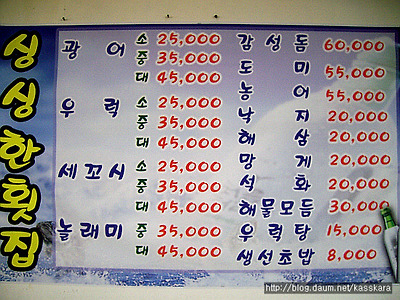 싱싱한횟집
광어 소 25,000
중 35,000
대 45,000
우럭 소 25,000
중 35,000
대 45,000
세꼬시 소 25,000
중 35,000
대 45,000
놀래미 중 35,000
대 45,000
감성돔 60,000
도미 55,000
농어 55,000
낙지 20,000
해삼 20,000
멍게 20,000
석화 20,000
해물모듬 30,000
우럭탕 15,000
생선초밥 8,000
http://blog.daum.net/kasskara